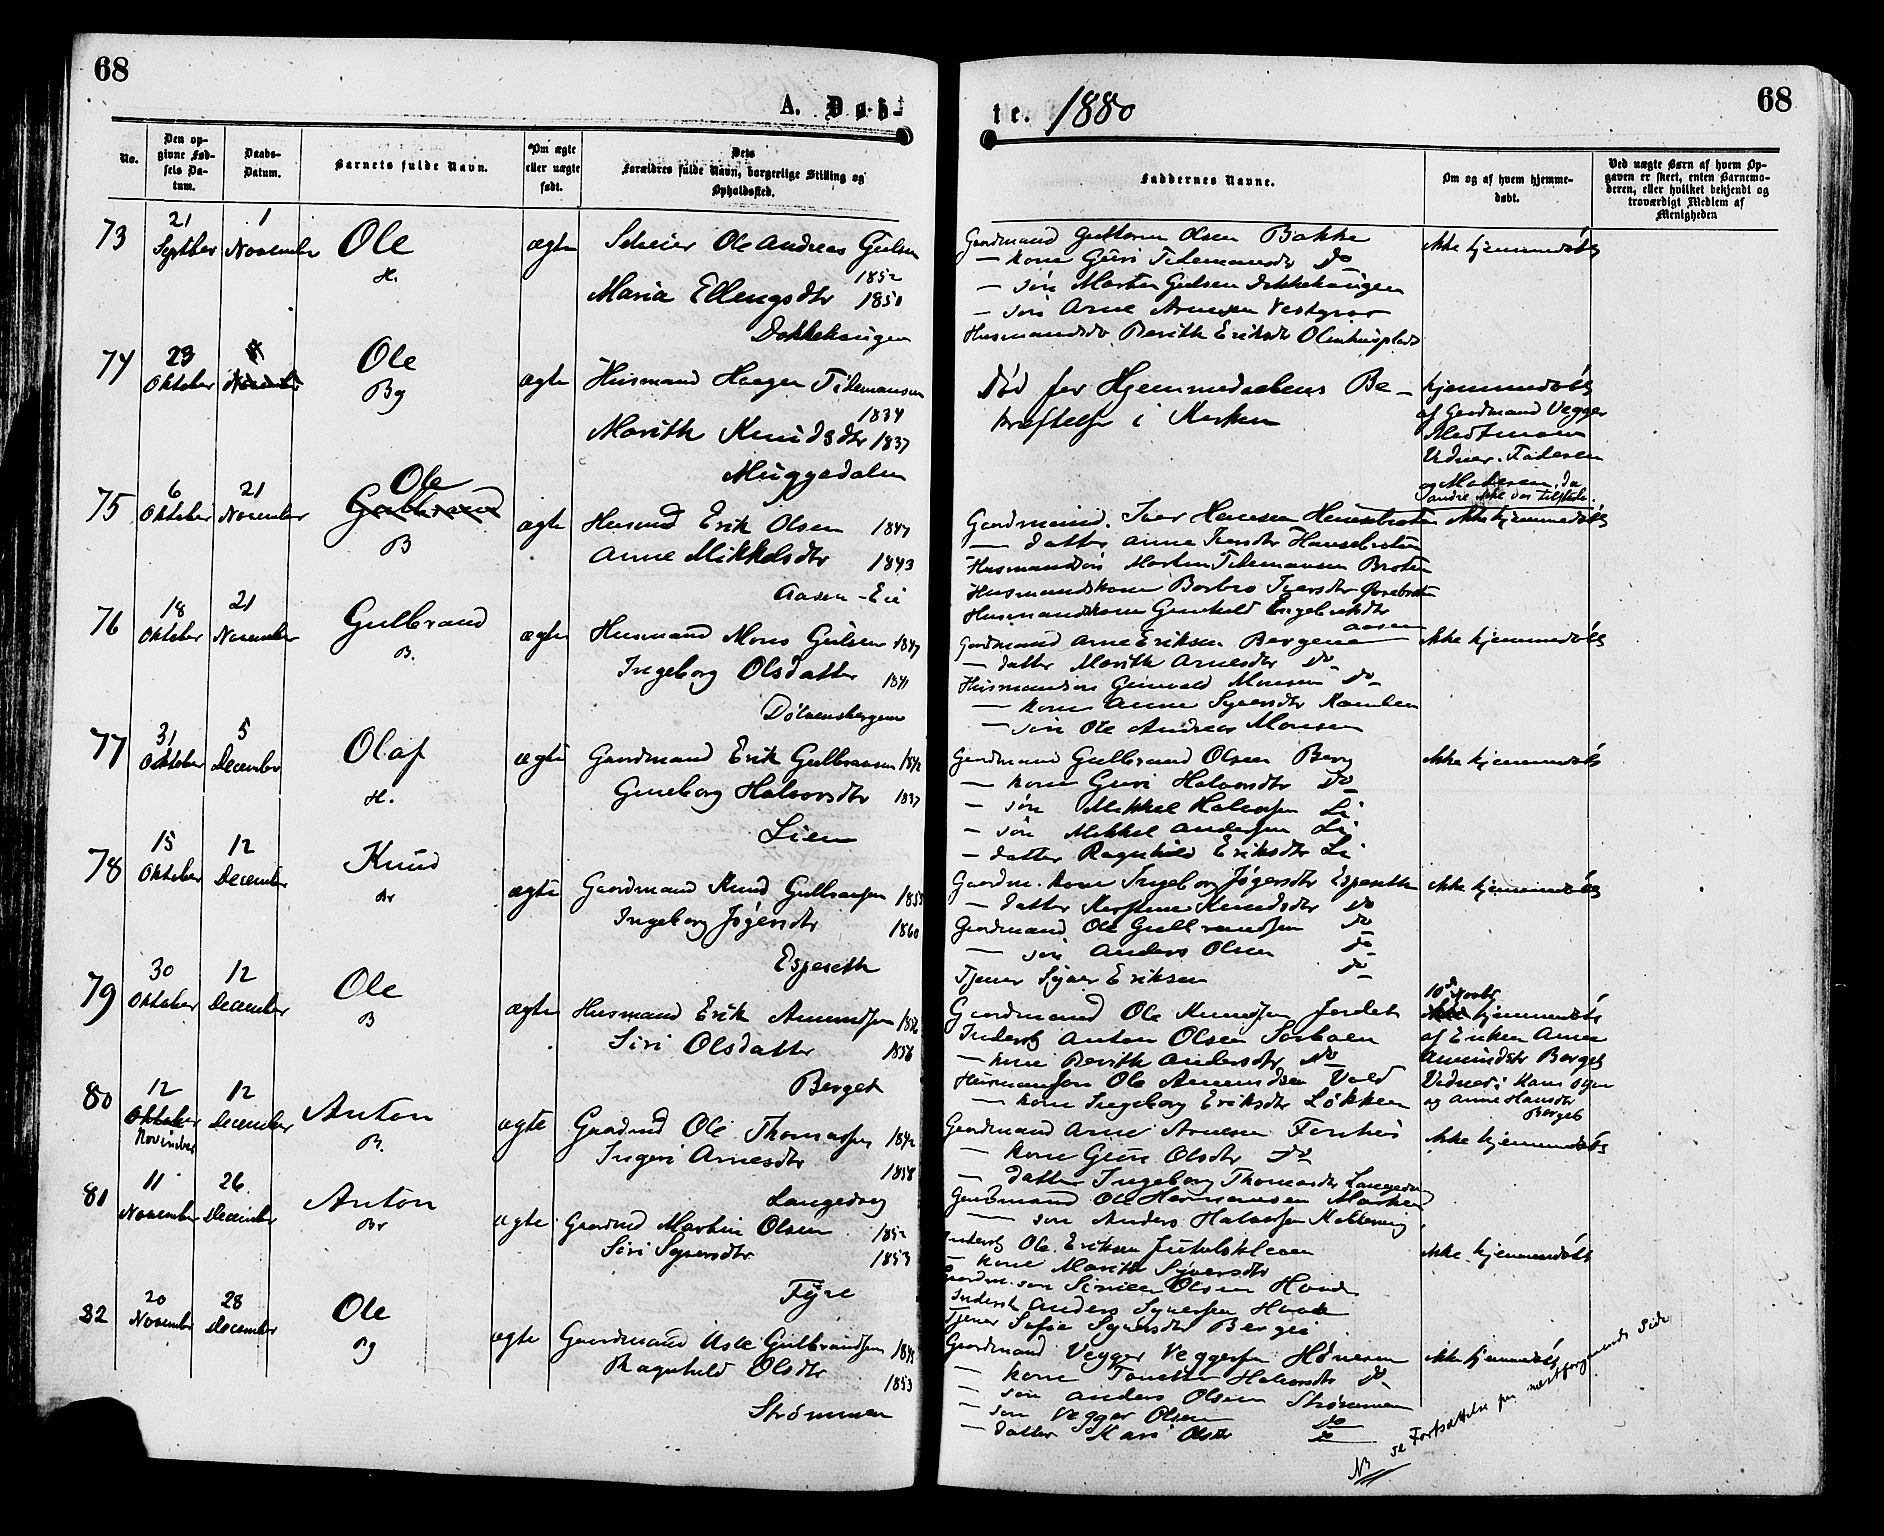 68
A. Døb-
te. 1880
68
No.
Den op-
givne Fød-
sels Da-
tum.
Daabs-
Datum.
Barnets fulde Navn.
Om ægte
eller uægte
født.
Dets
Forældres fulde Navn, borgerlige Stilling og
Opholdssted.
Faddernes Navne.
Om og af hvem hjemme-
døbt.
Ved uægte Børn af hvem Op-
gaven er skeet, enten Barnemo-
deren, eller hvilket bekjendt og
troværdigt Medlem af
Menigheden
73
21
Septber
1
November
Ole
H.
ægte
Ole Andreas Gulsen
1852
Maria Ellengsdtr 1850
Dokkehaugen
Gaardmand Guttorm Olsen Bakke
— kone Guri Tidemansdtr Do
— søn Morten Gulsen Dokkehaugen
— søn Arne Arnesen
Berith Eriksdtr
ikke hjemmedøbt
74
23
Oktober
Ole
Bg
ægte
Husmand Haagen Tidemansen
1834
Marith Knudsdtr 1837
Muggedalen
Død før Hjemmedaabens Be-
kræftelse i Kirken
hjemmedøbt
af Gardmand Vegger
Vidner. Faderen
og Moderen, da
andre ikke var tilstede.
75
6
Oktober
21
November
Ole
Gulbrand
B
ægte
Husmd Erik Olsen 1847
Anne Mikkelsdtr 1843
Aasen-Eie
Gaardmand. Iver Hansen
— datter Anne Iversdtr
Husmandssøn Morten Tidemansen Braten
Husmandskone Barbro Iversdtr
Husmandskone Gunhild Engebretsdtr
Aasen
ikke hjemmedøbt
76
18
Oktober
21
November
Gulbrand
B.
ægte
Husmand Mons Gulsen 1847
Ingeborg Olsdatter 1841
Gaardmand Arne Eriksen Bergene
— datter Marith Arnesdtr Do
Husmandsøn Gunvald Monsen Do
— kone Anne Syversdtr
— søn Ole Andreas Monsen
ikke hjemmedøbt
77
31
Oktober
5
December
Olaf
H.
ægte
Gaardmand Erik Gulbransen 1842
Guneborg Halvorsdtr 1837
Lien
Gaardmand Gulbrand Olsen Berg
— kone Guri Halvorsdtr Do
— søn Mikkel Halvorsen Li
— søn Mikkel Andersen Li
— datter Ragnhild Eriksdtr Li
ikke hjemmedøbt
78
15
Oktober
12
December
Knud
Br
ægte
Gaardmand Knud Gulbransen 1853
Ingeborg Jøgersdtr 1860
Espeseth
Gaardm. kone Ingeborg Jøgersdtr Espeseth
— datter Kirstine Knudsdtr Do
Gaardmand Ole Gulbrandsen Do
— søn Anders Olsen Do
Tjener Syver Eriksen Do
ikke hjemmedøbt
79
30
Oktober
12
December
Ole
B
ægte
Husmand Erik Amundsen 1852
Siri Olsdatter 1856
Berget
Gaardmand Ole Knudsen Jordet
Inderst Anton Olsen
— kone Berith Andersdtr Do
Husmandsøn Ole Amundsen
— kone Ingeborg Eriksdtr Løkken
10de Novbr
ikke hjemmedøbt
af Enken Anne
Amundsdtr Berget
Vidner: Hans
og Anne Hansdtr
Berget
80
12
Oktober
November
12
December
Anton
B.
ægte
Gaardmd Ole Thomassen 1842
Ingeri Arnesdtr 1858
Gaardmand Arne Arnesen
— kone Guri Olsdtr Do
— datter Ingeborg Thomasdtr
Gaardmand Ole Hermansen
— søn Anders Halvorsen
ikke hjemmedøbt
81
11
November
26
December
Anton
Br
ægte
Gaardmd Martin Olsen 1852
Siri Syversdtr 1853
Inderst Ole Eriksen
— kone Marith Syversdtr
Gaardm. søn Simen Olsen
Inderst Anders Syversen
Tjener Sofie Syversdtr
ikke hjemmedøbt
82
20
November
28
December
Ole
Bg
ægte
Gaardmand Gulbrandsen
Ragnhild Olsdtr 1853
Strømmen
Gaardmand Vegger Veggersen
— kone Halvorsdtr Do
— søn Anders Olsen Strømmen
— søn Vegger Olsen Do
— datter Kari Olsdtr Do
ikke hjemmedøbt
NB se Fortsættelse paa næstforegaaende Side